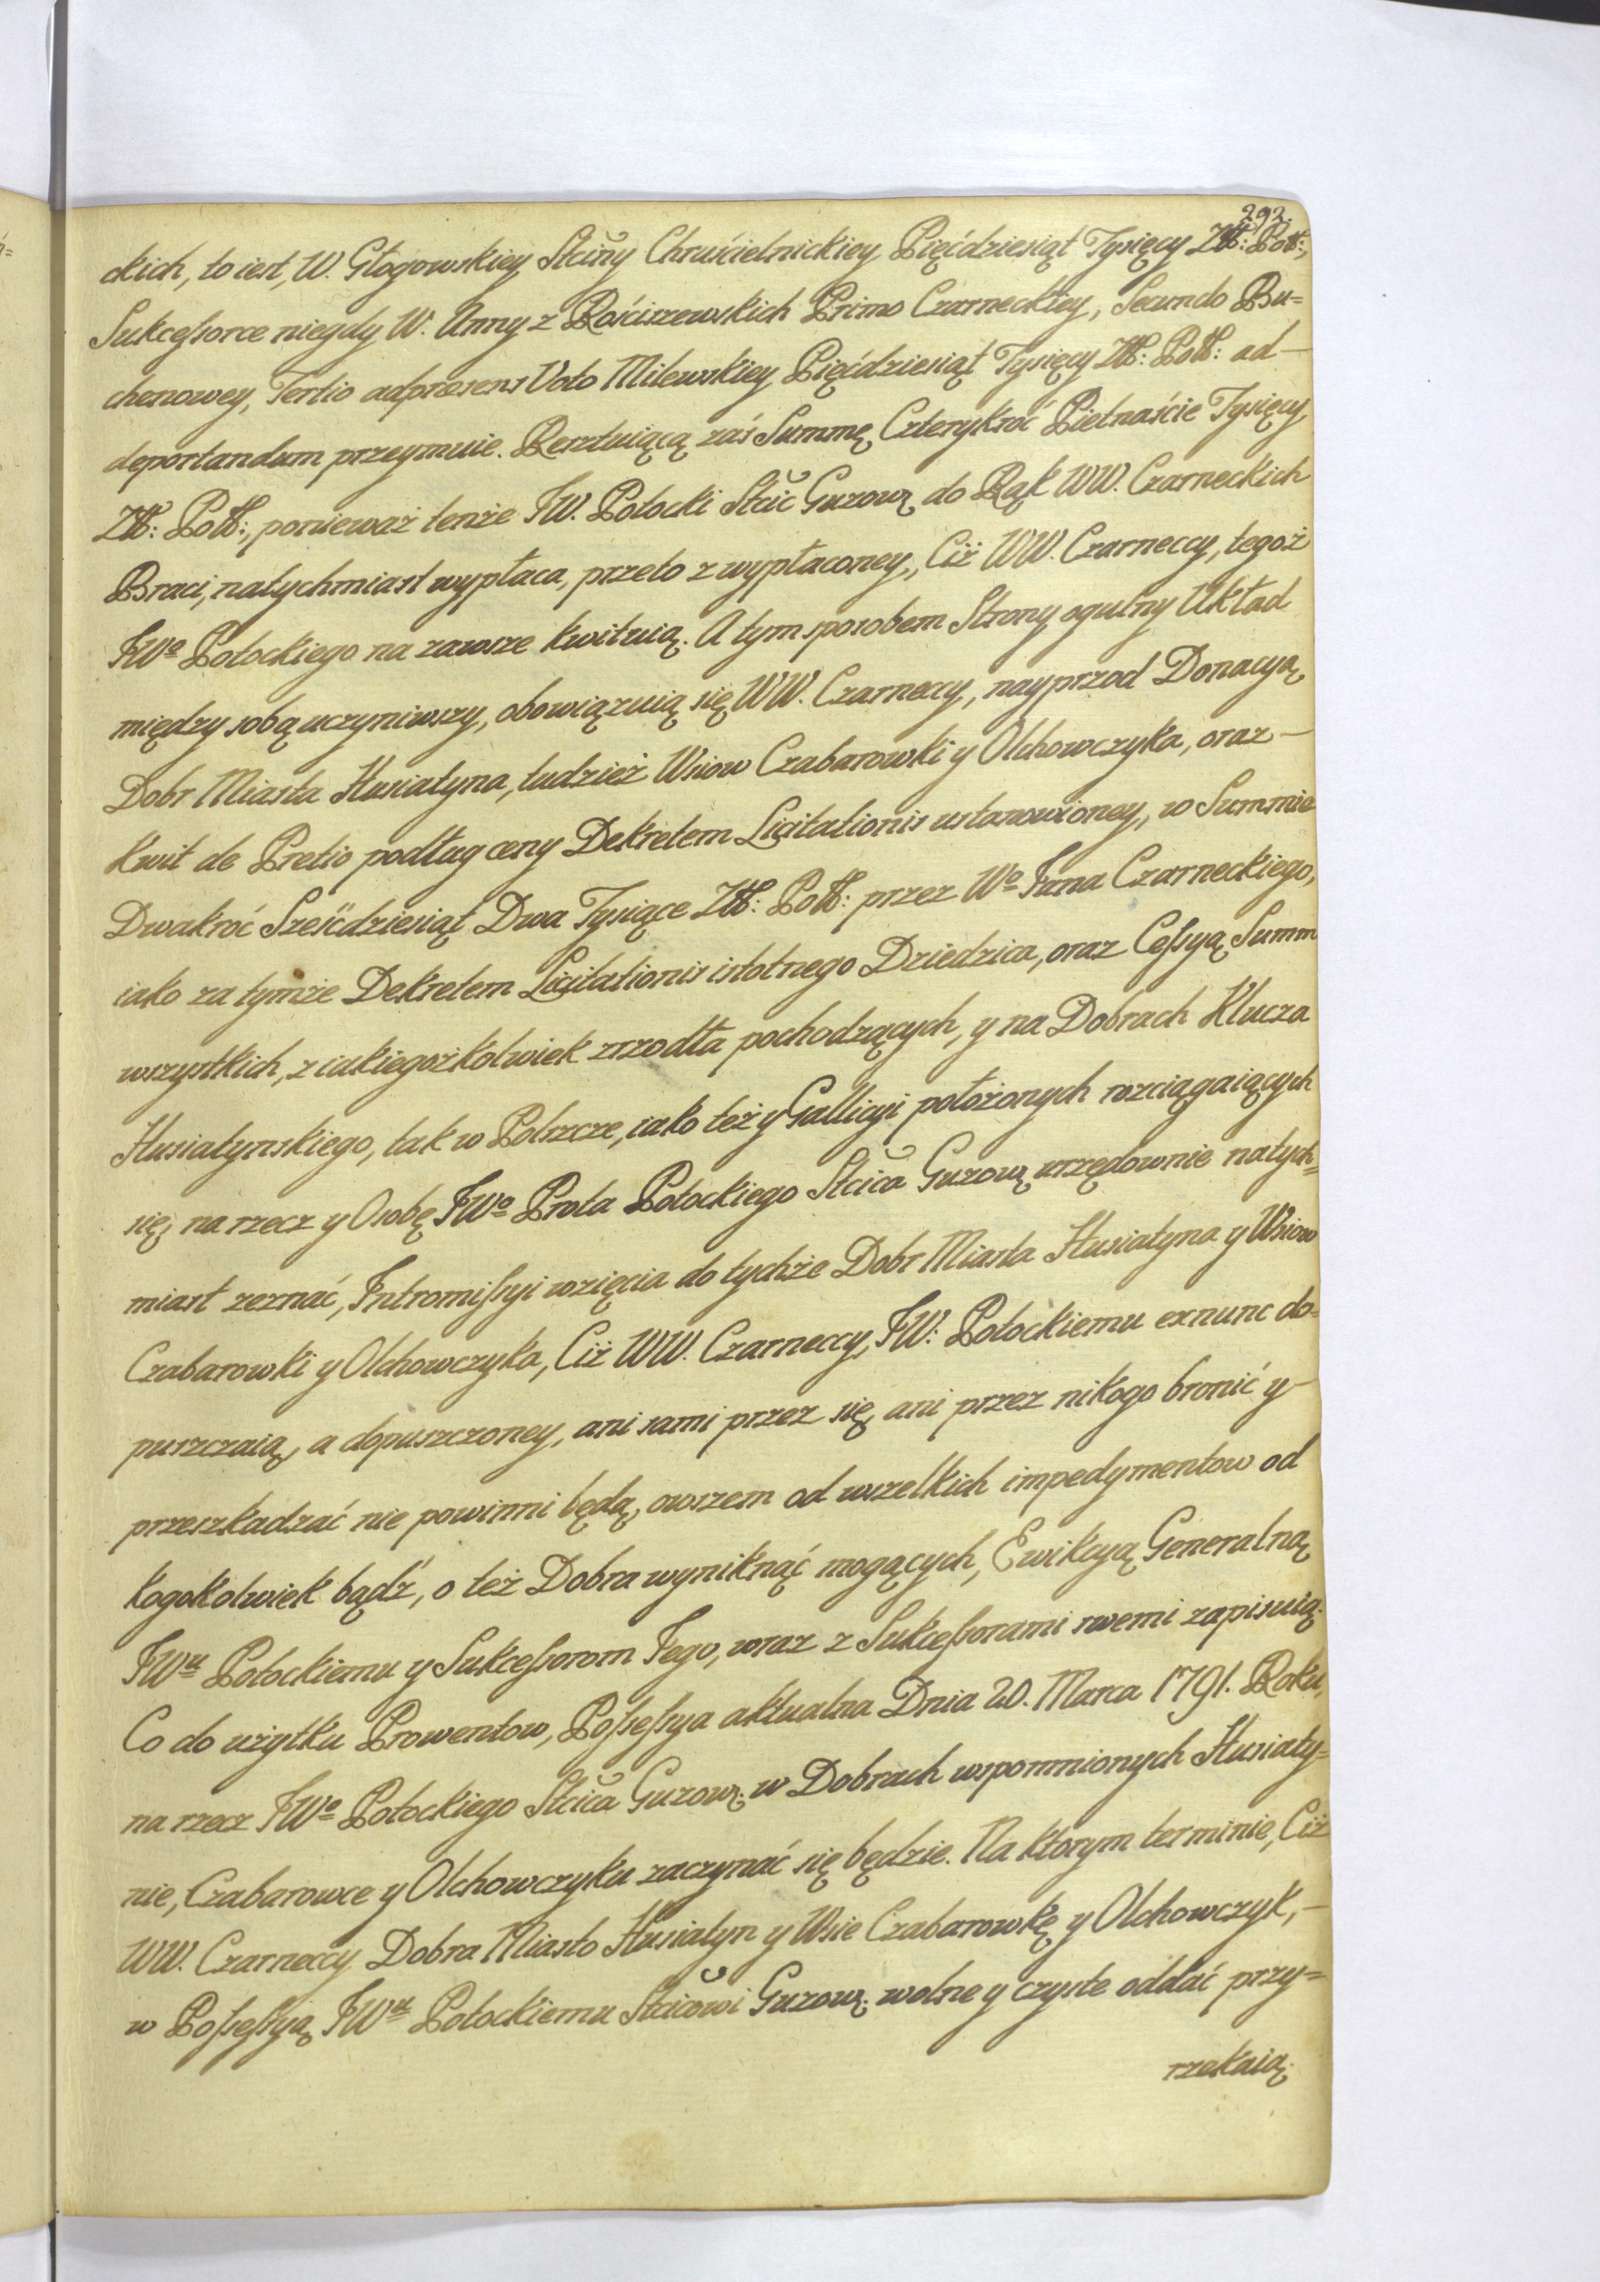 292.
ckich, to iest, W. Głogowskiey Stćiny Chruścielnickiey Pięćdziesiąt Tysięcy Złł: Poll:,
Sukcessorce niegdy W. Anny z Rościszewskich Primo Czarneckiey, Secundo Bu=
chenowey, Tertio adpraesens Voto Milewskiey Pięćdziesiąt Tysięcy Złł: Poll: ad—
deportandum przeymuie. Resztuiącą zaś Summę Czterykroć Pietnaście Tysięcy
Złł: Poll:, ponieważ tenże JW. Potocki Stćic Guzowꝫ do Rąk WW. Czarneckich
Braci, natychmiast wypłaca, przeto z wypłaconey, Ciż WW. Czarneccy, tegoż
JWo Potockiego na zawsze kwituią. A tym sposobem Strony ogulny Układ
między sobą uczyniwszy, obowiązuią się WW. Czarneccy, nayprzod Donacyą
Dobr Miasta Husiatyna, tudzież Wsiow Czabarowki y Olchowczyka, oraz—
Kwit de Pretio podług ceny Dekretem Licitationis ustanowioney, w Summie
Dwakroć Sześćdziesiąt Dwa Tysiące Złł: Poll: przez Wo Jana Czarneckiego,
iako za tymże Dekretem Licitationis istotnego Dziedzica, oraz Cessyą Summ
wszystkich, z iakiegożkolwiek zrzodła pochodzących, y na Dobrach Klucza
Husiatynskiego, tak w Polszcze, iako też y Gallicyi położonych rozciągaiących
się, na rzecz y Osobę JWo Prota Potockiego Stćica Guzowꝫ urzędownie natych=
miast zeznać, Intromissyi wzięcia do tychże Dobr Miasta Husiatyna y Wsiow
Czabarowki y Olchowczyka, Ciż WW. Czarneccy, JW: Potockiemu exnunc do=
puszczaią, a dopuszczoney, ani sami przez się, ani przez nikogo bronić y—
przeszkadzać nie powinni będą, owszem od wszelkich impedymentow od
kogokolwiek bądź, o też Dobra wyniknąć mogących, Ewikcyą Generalną
JWu Potockiemu y Sukcessorom Jego, wraz z Sukcessorami swemi zapisuią.
Co do użytku Prowentow, Possessya aktualna Dnia 20. Marca 1791. Roku,
na rzecz JWo Potockiego Stćica Guzowꝫ. w Dobrach wspomnionych Husiaty=
nie, Czabarowce y Olchowczyku zaczynać się będzie. Na ktorym terminie, Ciż
WW. Czarneccy Dobra Miasto Husiatyn y Wsie Czabarowkę y Olchowczyk,—
w Possessyą JWu Potockiemu Stćicowi Guzowꝫ. wolne y czyste oddać przy=
rzekaią.